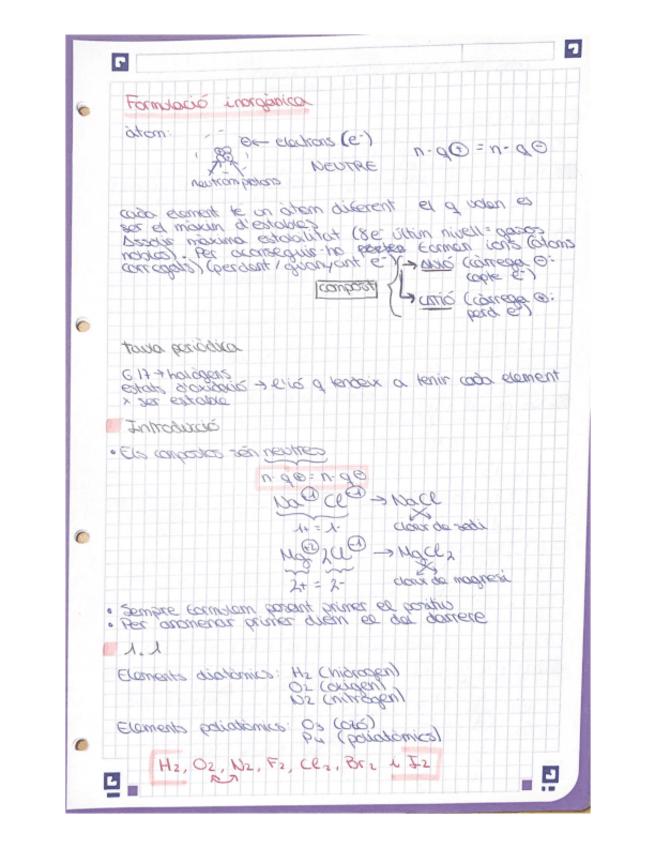 Formulació inorgànica
àtom:
e← electrons (e⁻)
n·q⊕ = n·q⊖
NEUTRE
neutrons protons
cada element té un àtom diferent el q volen es
ser el màxim d'estables
Assolir màxima estabilitat (8e⁻ últim nivell = gasos
nobles). Per aconseguir-ho formen ions (àtoms
carregats) (perdent/guanyant e⁻)
→ ANIÓ (càrrega ⊖:
capte e⁻)
compost
→ CATIÓ (càrrega ⊕:
perd e⁻)
taula periòdica
G17 → halògens
estats d'oxidació → l'ió q tendeix a tenir cada element
x ser estable
Introducció
• Els compostos són neutres
n·q⊕ = n·q⊖
Na⁺¹ Cl⁻¹ → NaCl
1+ = 1-
clorur de sodi
Mg⁺² 2Cl⁻¹ → MgCl₂
2+ = 2-
clorur de magnesi
• Sempre formulem posant primer el positiu
• Per anomenar primer diem el del darrere
1.1
Elements diatòmics: H₂ (hidrogen)
O₂ (oxigen)
N₂ (nitrògen)
Elements poliatòmics: O₃ (ozó)
P₄ (poliatòmics)
H₂, O₂, N₂, F₂, Cl₂, Br₂ i I₂